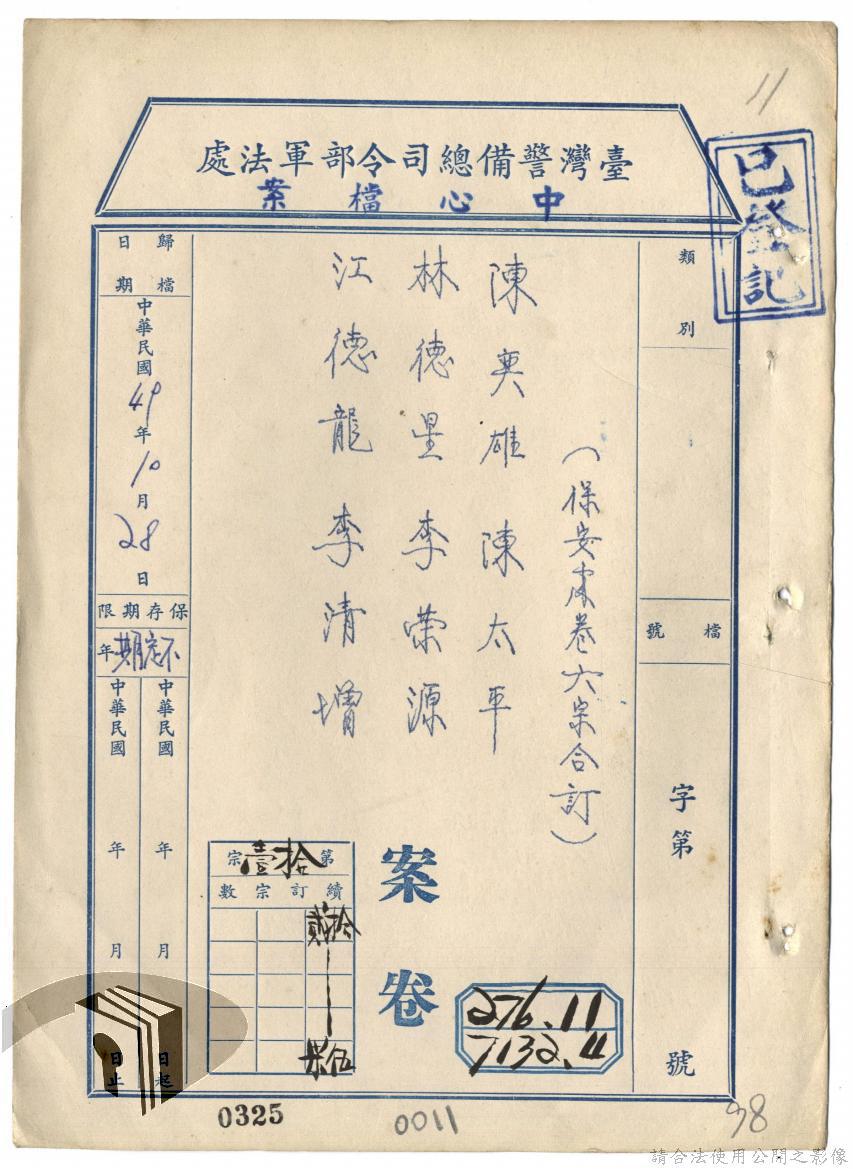 11
臺灣警備總司令部軍法處
中心檔案
已登記
類別
檔號
字第
號
（保安處卷六宗合訂）
陳英雄 陳太平
林德星 李榮源
江德龍 李清增
案卷
第拾壹宗
續訂宗數
拾貳
276.11
7132.4
歸檔日期
中華民國49年10月28日
保存期限
不定期年
中華民國 年 月 日起
中華民國 年 月 日止
0325
0011
98
請合法使用公開之影像